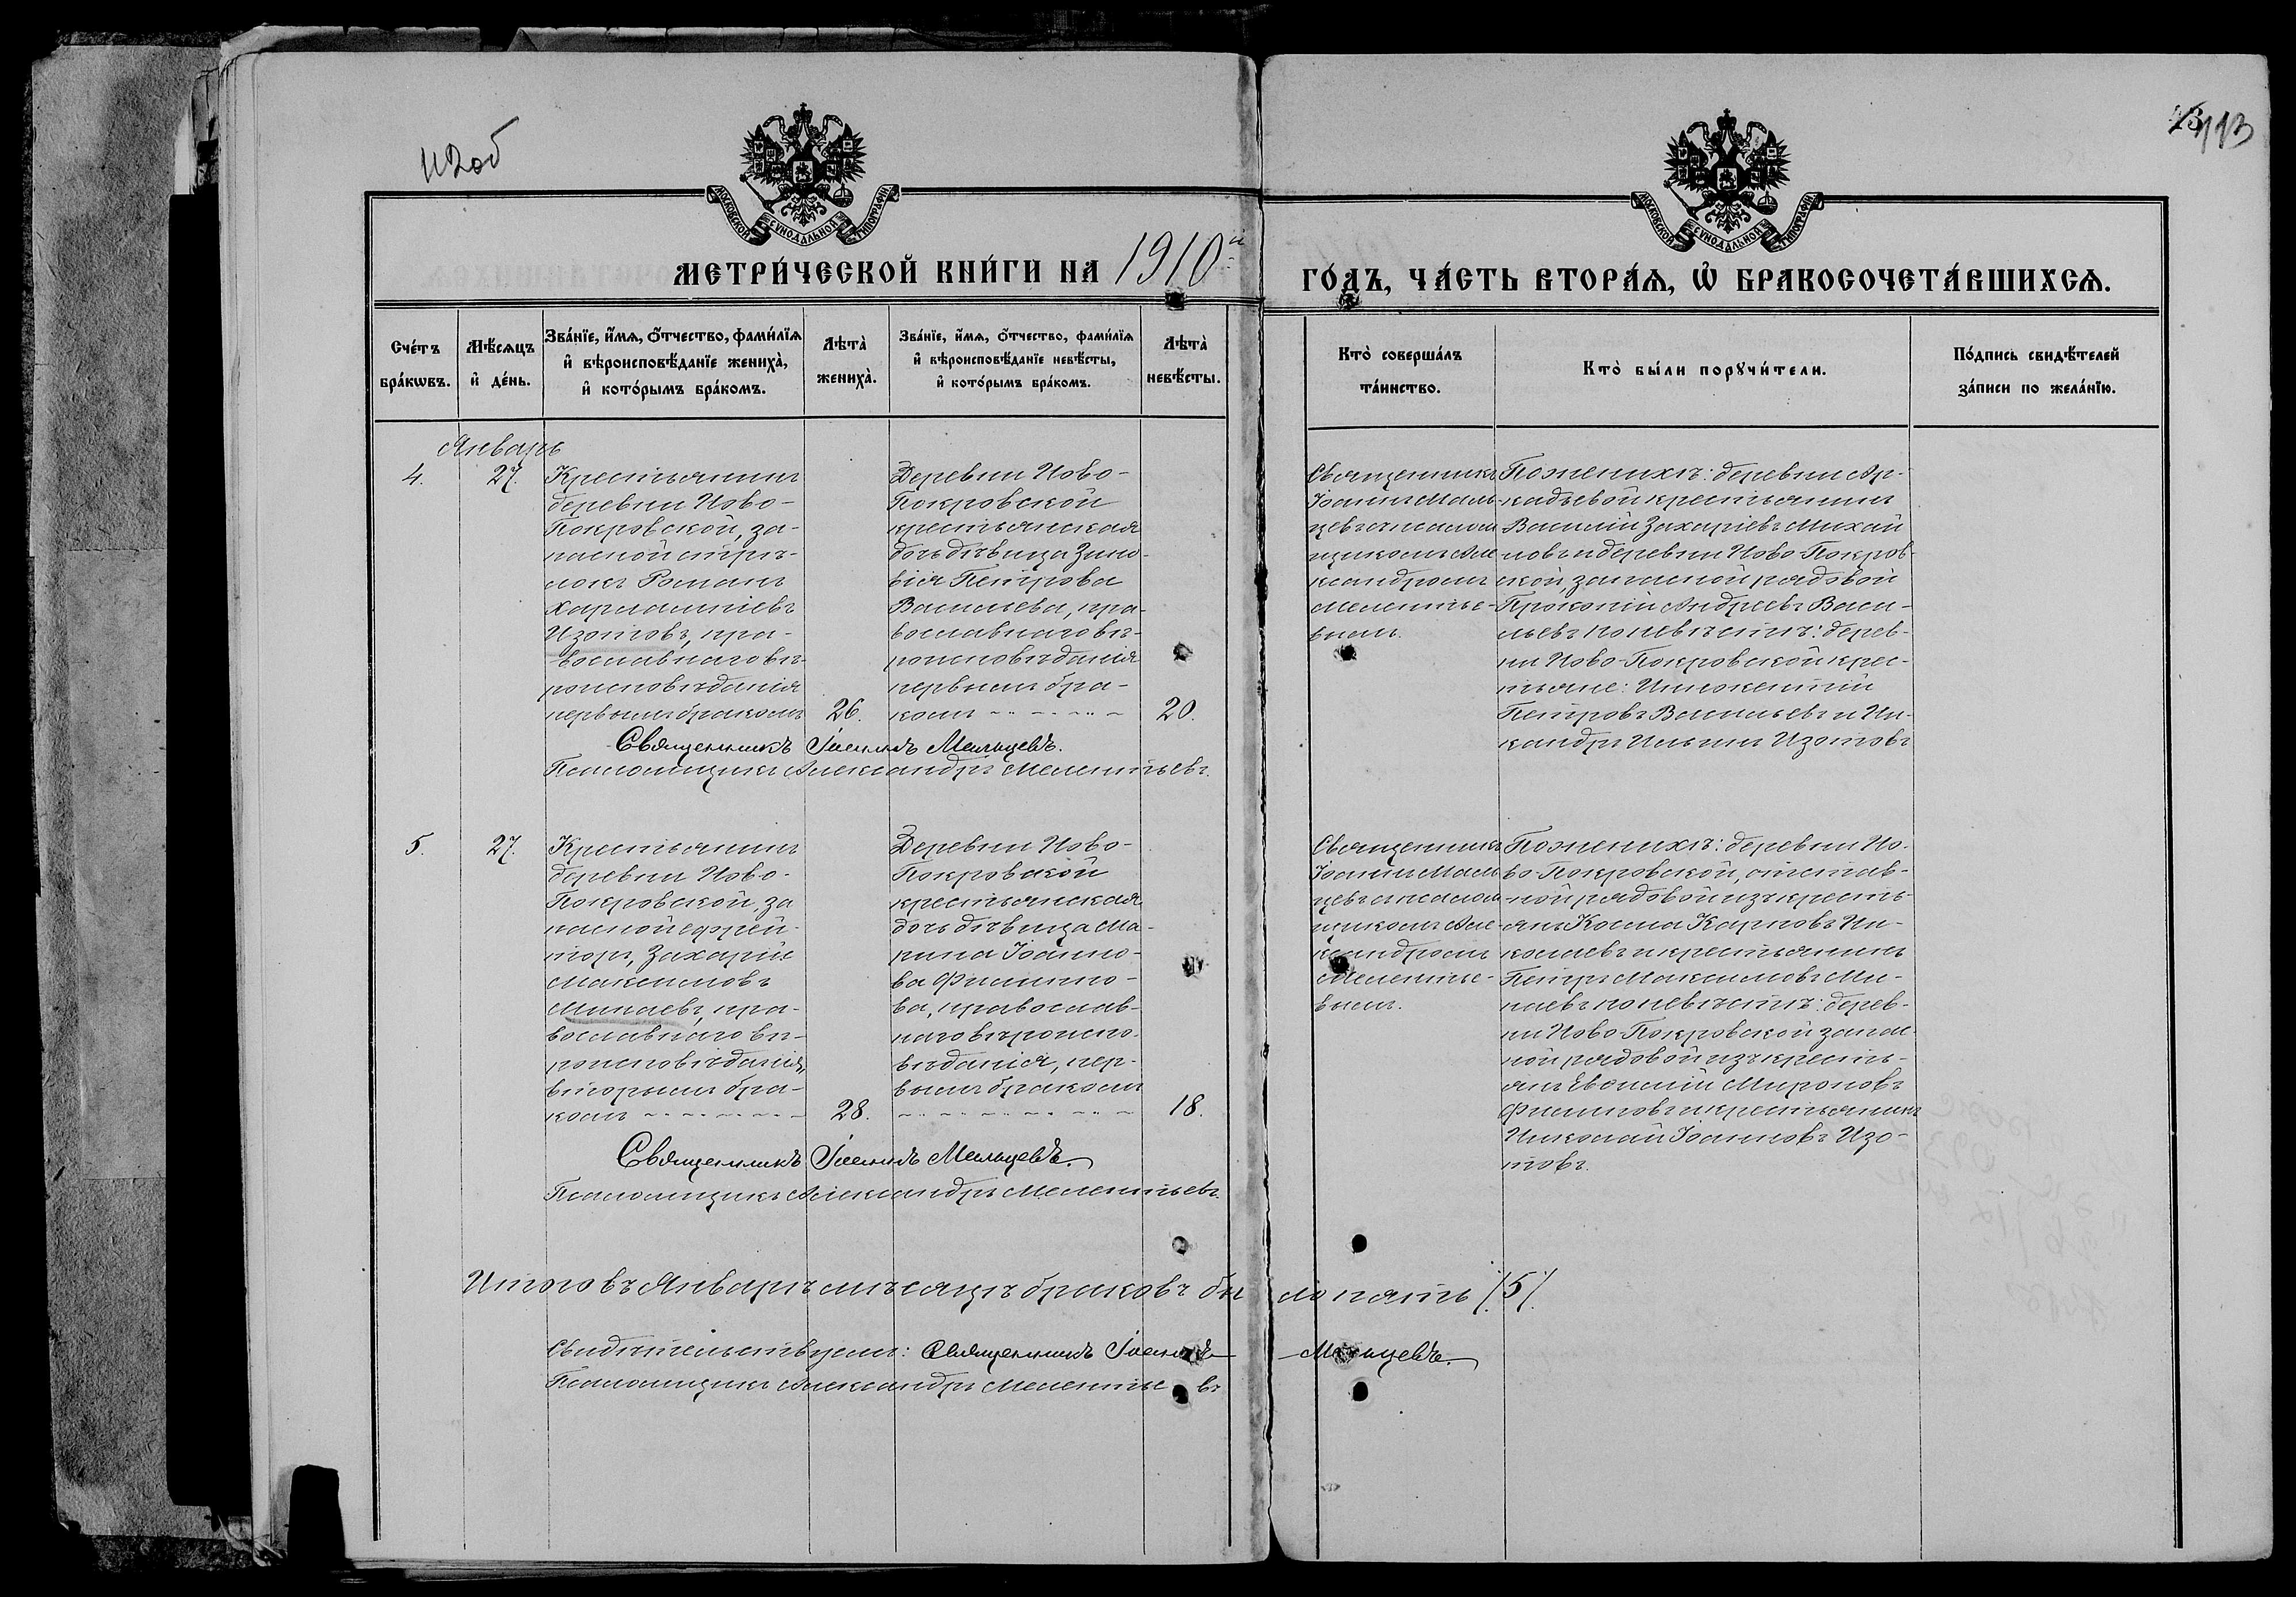 112об
113
МОСКОВСКОЙ СѴНОДАЛЬНОЙ ТИПОГРАФІИ
МОСКОВСКОЙ СѴНОДАЛЬНОЙ ТИПОГРАФІИ
МЕТРИ́ЧЕСКОЙ КНИ́ГИ НА 1910й ГО́ДЪ, ЧА́СТЬ ВТОРА́Ѧ, Ѡ҆ БРАКОСОЧЕТА́ВШИХСѦ.
Сче́тъ бра́кѡвъ.
Мѣ́сѧцъ и҆ де́нь.
Зва́нїе, и҆́мѧ, ѻ҆́тчество, фами́лїѧ
и҆ вѣроисповѣ́данїе жениха̀,
и҆ кото́рымъ бра́комъ.
Лѣта̀ жениха̀.
Зва́нїе, и҆́мѧ, ѻ҆́тчество, фами́лїѧ
и҆ вѣроисповѣ́данїе невѣ́сты,
и҆ кото́рымъ бра́комъ.
Лѣта̀ невѣ́сты.
Кто̀ соверша́лъ та́инство.
Кто̀ бы́ли порꙋчи́тели.
По́дпись свидѣ́телей
за́писи по жела́нїю.
Январь
4.
27.
Крестьянинъ
деревни Ново-
Покровской, за-
пасной стрѣ-
локъ Романъ
Харлампіевъ
Изотовъ, пра-
вославнаго вѣ-
роисповѣданія
первымъ бракомъ
26.
Деревни Ново-
Покровской
крестьянская
дочь дѣвица Зино-
вія Петрова
Васильева, пра-
вославнаго вѣ-
роисповѣданія
первымъ бра-
комъ
20.
Священникъ
Іоаннъ Маль-
цевъ съ псалом-
щикомъ Але-
ксандромъ
Мелентье-
вымъ.
По женихѣ: деревни Ар-
кадьевой крестьянинъ
Василій Захаріевъ Михай-
ловъ и деревни Ново-Покров-
ской, запасной рядовой
Прокопій Андреевъ Васи-
льевъ по невѣстѣ: дерев-
ни Ново-Покровской крес-
тьяне: Иннокентій
Петровъ Васильевъ и Ни-
кандръ Ильинъ Изотовъ
Священникъ Іоаннъ Мальцевъ.
Псаломщикъ Александръ Мелентьевъ.
5.
27.
Крестьянинъ
деревни Ново-
Покровской, за
пасной ефрей-
торъ, Захарій
Максимовъ
Минаевъ, пра-
вославнаго вѣ-
роисповѣданія,
вторымъ бра-
комъ
28.
Деревни Ново-
Покровской
крестьянская
дочь дѣвица Ма-
рина Іоанно-
ва Филиппо-
ва, православ-
наго вѣроиспо-
вѣданія, пер-
вымъ бракомъ
18.
Священникъ
Іоаннъ Маль-
цевъ съ псалом-
щикомъ Але-
ксандромъ
Мелентье-
вымъ.
По женихѣ: деревни Но-
во-Покровской, отстав-
ной рядовой изъ кресть-
янъ Косма Карповъ Ни-
колаевъ и крестьянинъ
Петръ Максимовъ Ми-
наевъ по невѣстѣ: дерев-
ни Ново-Покровской запас-
ной рядовой изъ кресть-
янъ Евсмпій Мироновъ
Филиповъ и крестьянинъ
Николай Іоанновъ Изо-
товъ.
Священникъ Іоаннъ Мальцевъ.
Псаломщикъ Александръ Мелентьевъ.
Итого въ Январѣ мѣсяцѣ браковъ было пять /5/.
Свидѣтельствуемъ: Священникъ Іоаннъ Мальцевъ.
Псаломщикъ Александръ Мелентьевъ